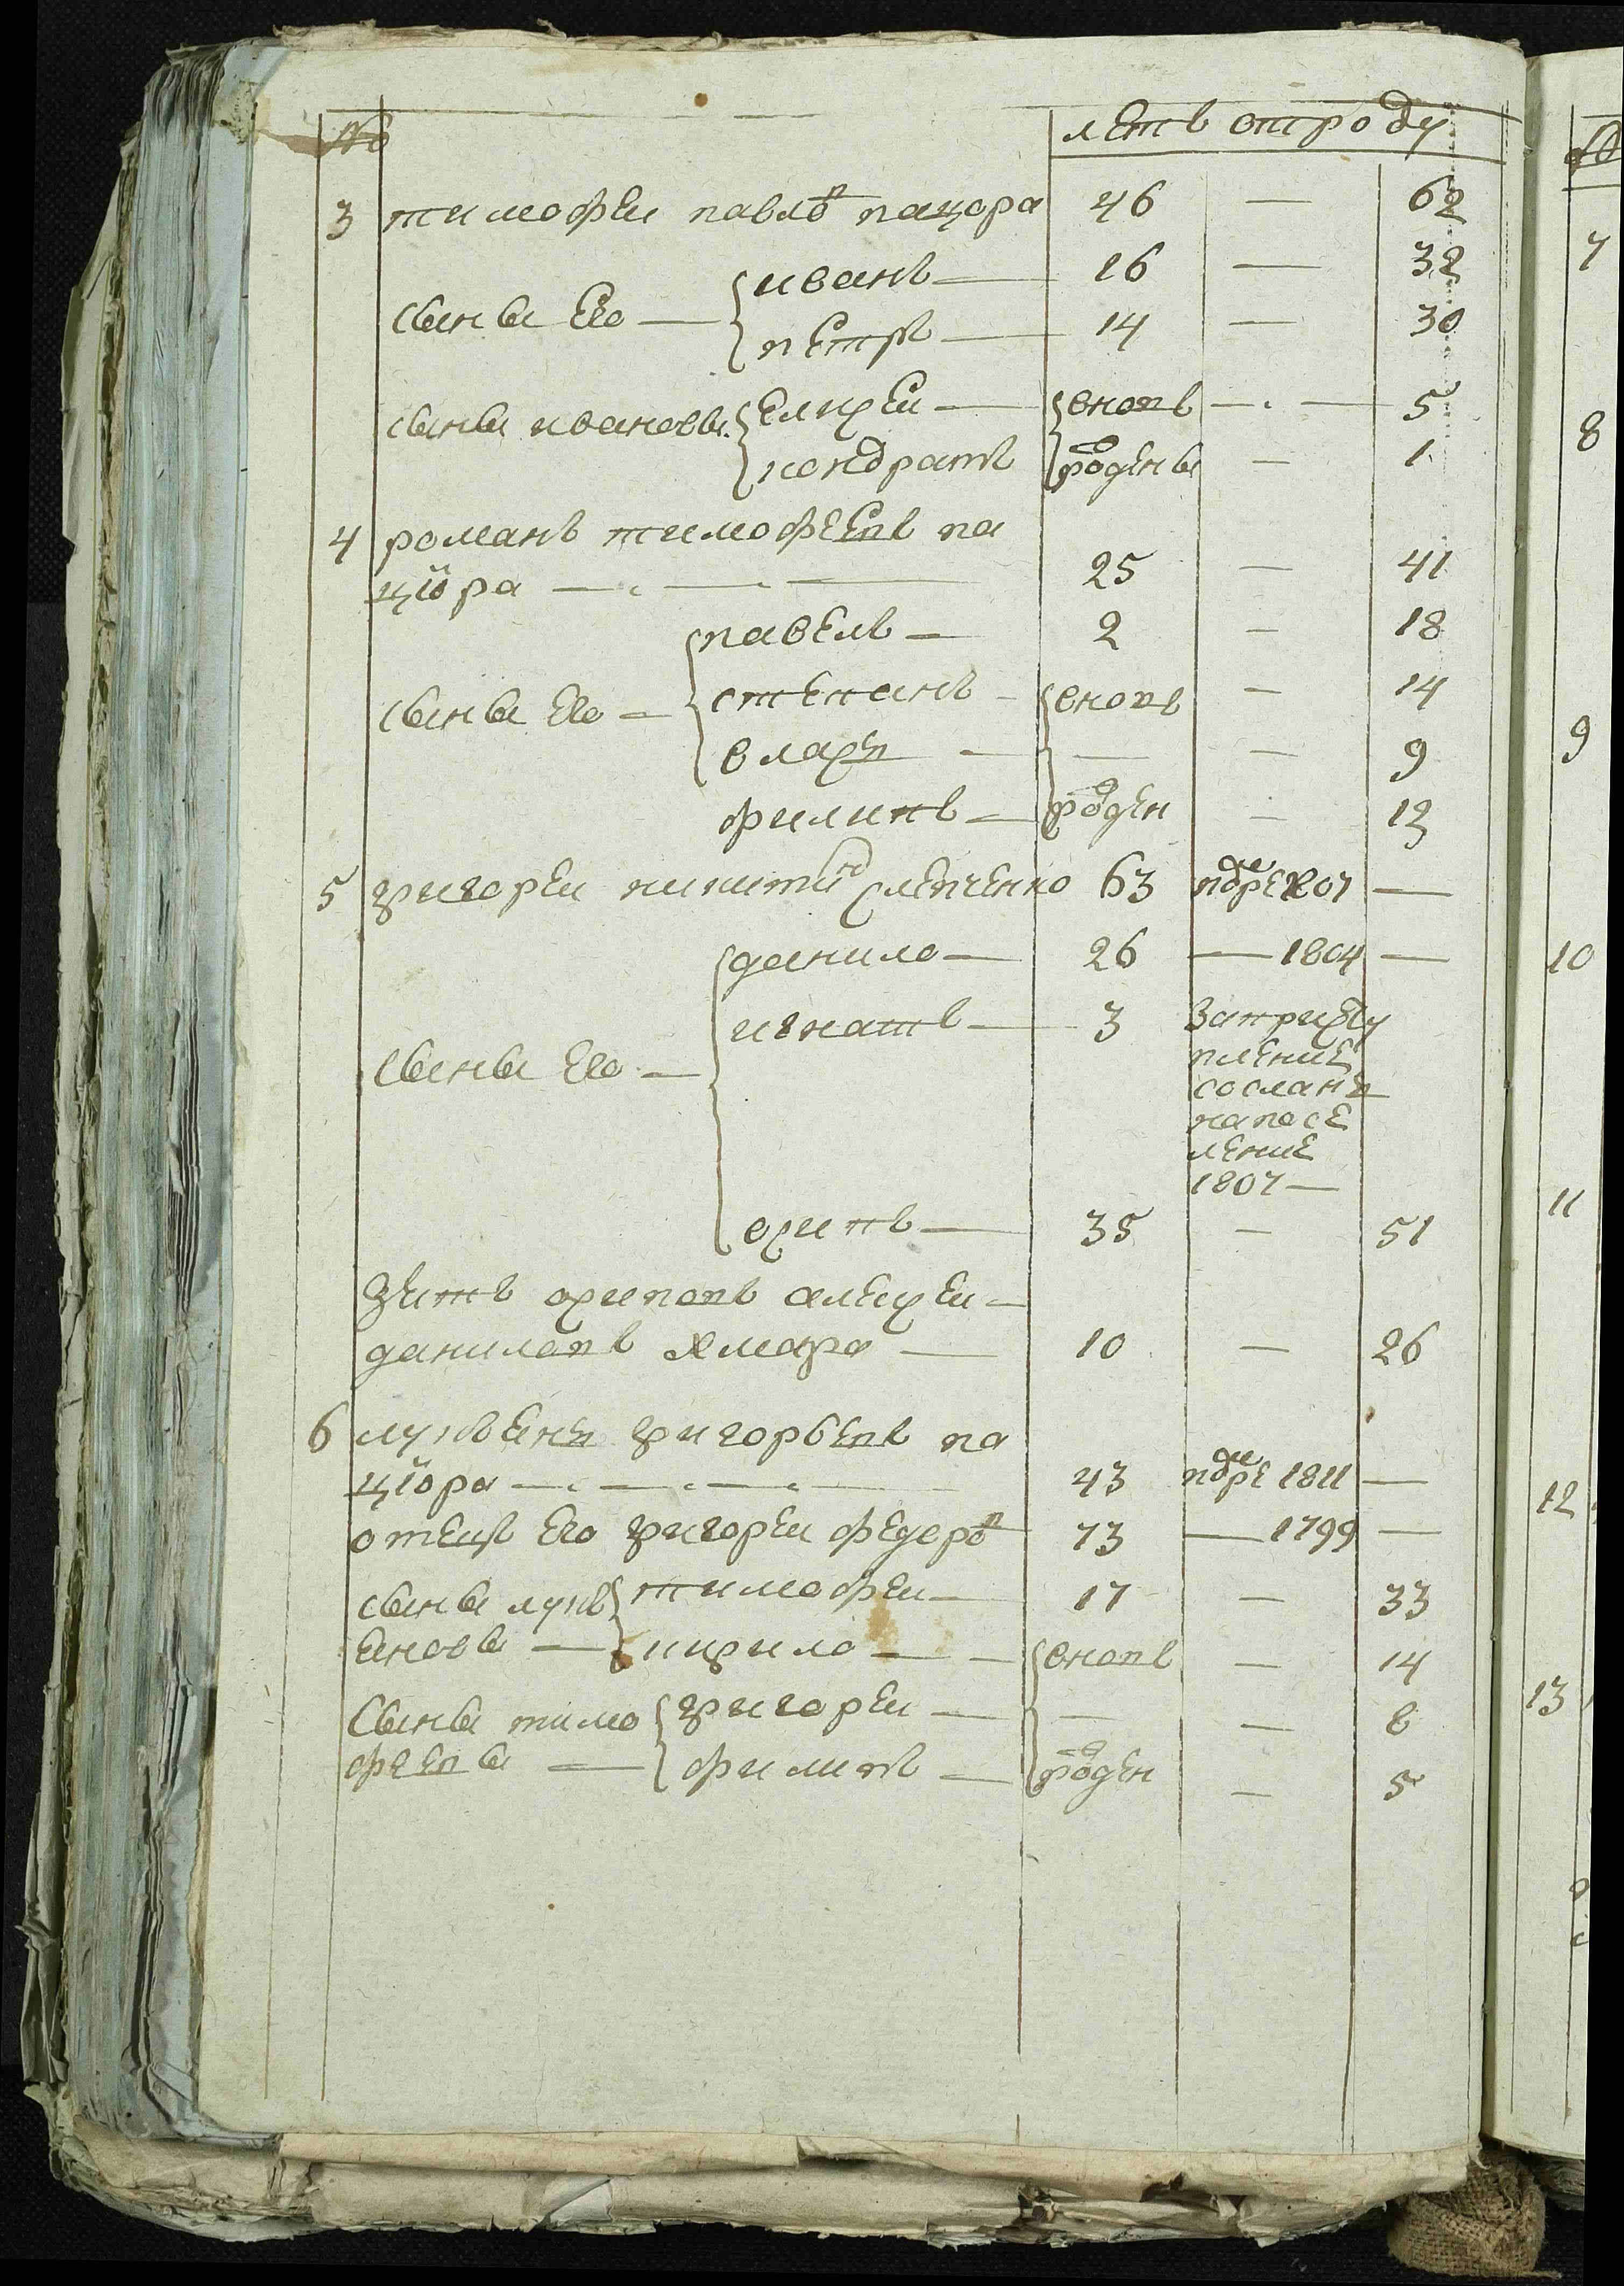 № летъ отроду
3 тимофеи павловъ пацора 46 — 62
сыны его — иванъ — 16 — 32
петръ — 14 — 30
сыны ивановы елисеи — вновь — 5
кондратъ рожденъы — 1
4 романъ тимофеевъ па
цюра — 25 — 41
павелъ — 2 — 18
сыны его — степанъ — вновь — 14
власъ — — — 9
филипъ — рожден — 13
5 григореи никитинъ 63 померъ 1807 —
данило — 26 — 1804 —
игнатъ — 3 запреступ
сыны его — пление
сосланъ
напосе
ление
1807 —
осипъ — 35 — 51
зять осиповъ алексеи —
даниловъ хмара — 10 — 26
6 лукъянъ григорьевъ па
цюра — 43 померъ 1811 —
отецъ его григореи федоровъ 73 — 1799 —
сыны лукъ тимофеи — 17 — 33
яновы — кирило — вновь — 14
сыны тимо григореи — — — 8
феевы — филипъ — рожден — 5
№
7
8
9
10
11
12
13